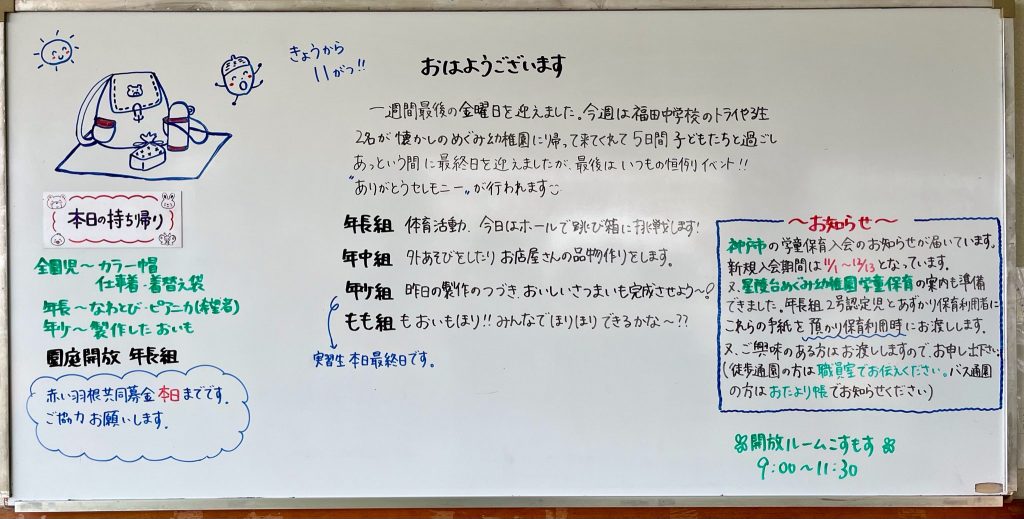 きょうから
11がつ!!
おはようございます
一週間最後の金曜日を迎えました。今週は福田中学校のトライやる生
2名が懐かしのめぐみ幼稚園に帰って来てくれて5日間子どもたちと過ごし
あっという間に最終日を迎えましたが、最後はいつもの恒例イベント!!
"ありがとうセレモニー"が行われます
年長組 体育活動、今日はホールで跳び箱に挑戦します!
年中組 外あそびをしたりお店屋さんの品物作りをします。
年少組 昨日の製作のつづき、おいしいさつまいも完成させよう〜!
もも組 もおいもほり!!みんなでほりほりできるかな〜??
実習生本日最終日です。
本日の持ち帰り
全園児〜カラー帽
仕事着・着替え袋
年長〜なわとび・ピアニカ(希望者)
年少〜製作したおいも
園庭開放 年長組
赤い羽根共同募金本日までです。
ご協力お願いします。
〜お知らせ〜
神戸市の学童保育入会のお知らせが届いています。
新規入会期間は11/1〜12/13となっています。
又、星陵台めぐみ幼稚園学童保育の案内も準備
できました。年長組2号認定児とあずかり保育利用者に
これらの手紙を預かり保育利用時にお渡しします。
又、ご興味のある方はお渡ししますので、お申し出下さい。
(徒歩通園の方は職員室でお伝えください。バス通園
の方はおたより帳でお知らせください)
開放ルームこすもす
9:00〜11:30